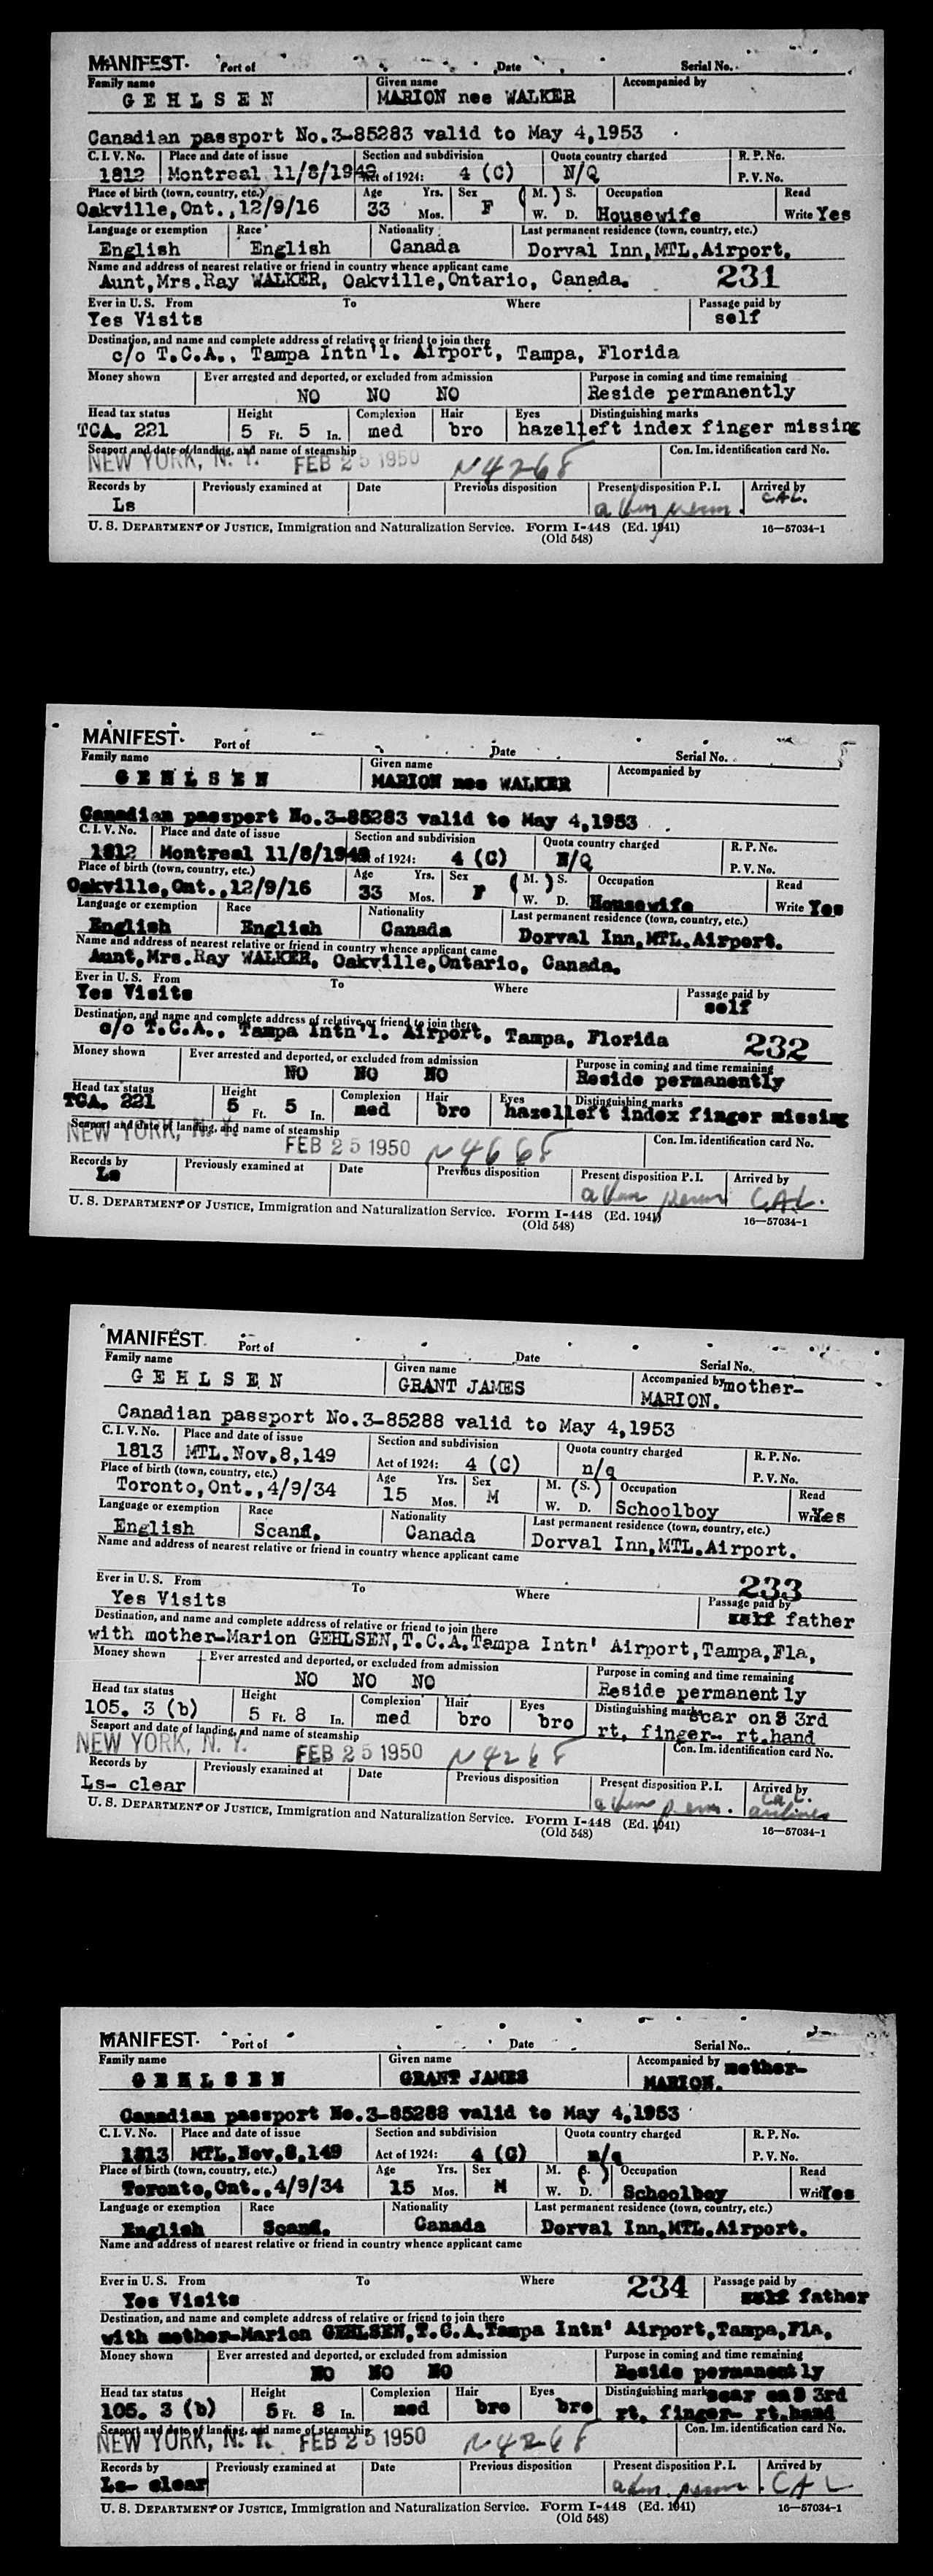 MANIFEST. Port of Date Serial No.
Family name Given name Accompanied by
G E H L S E N MARION nee WALKER
Canadian passport No.3-85283 valid to May 4,1953
C. I. V. No. Place and date of issue Section and subdivision Quota country charged R. P. No.
1812 Montreal 11/8/1949 Act of 1924: 4 (C) N/Q P. V. No.
Place of birth (town, country, etc.) Age Yrs. Sex (M.) S. Occupation Read
Oakville,Ont.,12/9/16 33 Mos. F W. D. Housewife Write Yes
Language or exemption Race Nationality Last permanent residence (town, country, etc.)
English English Canada Dorval Inn,MTL.Airport.
Name and address of nearest relative or friend in country whence applicant came
Aunt,Mrs.Ray WALKER, Oakville,Ontario, Canada. 231
Ever in U. S. From To Where Passage paid by
Yes Visits self
Destination, and name and complete address of relative or friend to join there
c/o T.C.A., Tampa Intn'l. Airport, Tampa, Florida
Money shown Ever arrested and deported, or excluded from admission Purpose in coming and time remaining
NO NO NO Reside permanently
Head tax status Height Complexion Hair Eyes Distinguishing marks
TCA. 221 5 Ft. 5 In. med bro hazel left index finger missing
Seaport and date of landing, and name of steamship Con. Im. identification card No.
NEW YORK, N. Y. FEB 25 1950 N4268
Records by Previously examined at Date Previous disposition Present disposition P. I. Arrived by
Ls adm perm. C.A.L.
U. S. DEPARTMENT OF JUSTICE, Immigration and Naturalization Service. Form I-448 (Ed. 1941) 16—57034-1
(Old 548)
MANIFEST. Port of Date Serial No.
Family name Given name Accompanied by
G E H L S E N MARION nee WALKER
Canadian passport No.3-85283 valid to May 4,1953
C. I. V. No. Place and date of issue Section and subdivision Quota country charged R. P. No.
1812 Montreal 11/8/1949 of 1924: 4 (C) N/Q P. V. No.
Place of birth (town, country, etc.) Age Yrs. Sex (M.) S. Occupation Read
Oakville,Ont.,12/9/16 33 Mos. F W. D. Housewife Write Yes
Language or exemption Race Nationality Last permanent residence (town, country, etc.)
English English Canada Dorval Inn,MTL.Airport.
Name and address of nearest relative or friend in country whence applicant came
Aunt,Mrs.Ray WALKER, Oakville,Ontario, Canada.
Ever in U. S. From To Where Passage paid by
Yes Visits self
Destination, and name and complete address of relative or friend to join there
c/o T.C.A., Tampa Intn'l. Airport, Tampa, Florida 232
Money shown Ever arrested and deported, or excluded from admission Purpose in coming and time remaining
NO NO NO Reside permanently
Head tax status Height Complexion Hair Eyes Distinguishing marks
TCA. 221 5 Ft. 5 In. med bro hazel left index finger missing
Seaport and date of landing, and name of steamship Con. Im. identification card No.
NEW YORK, N. Y. FEB 25 1950 N4668
Records by Previously examined at Date Previous disposition Present disposition P. I. Arrived by
Ls adm perm C.A.L.
U. S. DEPARTMENT OF JUSTICE, Immigration and Naturalization Service. Form I-448 (Ed. 1941) 16—57034-1
(Old 548)
MANIFEST. Port of Date Serial No.
Family name Given name Accompanied by mother-
G E H L S E N GRANT JAMES MARION.
Canadian passport No.3-85288 valid to May 4,1953
C. I. V. No. Place and date of issue Section and subdivision Quota country charged R. P. No.
1813 MTL.Nov.8,149 Act of 1924: 4 (C) n/q P. V. No.
Place of birth (town, country, etc.) Age Yrs. Sex M. (S.) Occupation Read
Toronto,Ont.,4/9/34 15 Mos. M W. D. Schoolboy Write Yes
Language or exemption Race Nationality Last permanent residence (town, country, etc.)
English Scand. Canada Dorval Inn,MTL.Airport.
Name and address of nearest relative or friend in country whence applicant came
233
Ever in U. S. From To Where Passage paid by
Yes Visits self father
Destination, and name and complete address of relative or friend to join there
with mother-Marion GEHLSEN,T.C.A.Tampa Intn' Airport,Tampa,Fla,
Money shown Ever arrested and deported, or excluded from admission Purpose in coming and time remaining
NO NO NO Reside permanent ly
Head tax status Height Complexion Hair Eyes Distinguishing marks scar onS 3rd
105. 3 (b) 5 Ft. 8 In. med bro bro rt. finger- rt.hand
Seaport and date of landing, and name of steamship Con. Im. identification card No.
NEW YORK, N. Y. FEB 25 1950 N4268
Records by Previously examined at Date Previous disposition Present disposition P. I. Arrived by
Ls- clear adm perm. C.A.L. airlines
U. S. DEPARTMENT OF JUSTICE, Immigration and Naturalization Service. Form I-448 (Ed. 1941) 16—57034-1
(Old 548)
MANIFEST. Port of Date Serial No.
Family name Given name Accompanied by mother-
G E H L S E N GRANT JAMES MARION.
Canadian passport No.3-85288 valid to May 4,1953
C. I. V. No. Place and date of issue Section and subdivision Quota country charged R. P. No.
1813 MTL.Nov.8,149 Act of 1924: 4 (C) n/q P. V. No.
Place of birth (town, country, etc.) Age Yrs. Sex M. (S.) Occupation Read
Toronto,Ont.,4/9/34 15 Mos. M W. D. Schoolboy Write Yes
Language or exemption Race Nationality Last permanent residence (town, country, etc.)
English Scand. Canada Dorval Inn,MTL.Airport.
Name and address of nearest relative or friend in country whence applicant came
Ever in U. S. From To Where 234 Passage paid by
Yes Visits self father
Destination, and name and complete address of relative or friend to join there
with mother-Marion GEHLSEN,T.C.A.Tampa Intn' Airport,Tampa,Fla,
Money shown Ever arrested and deported, or excluded from admission Purpose in coming and time remaining
NO NO NO Reside permanent ly
Head tax status Height Complexion Hair Eyes Distinguishing marks scar onS 3rd
105. 3 (b) 5 Ft. 8 In. med bro bro rt. finger- rt.hand
Seaport and date of landing, and name of steamship Con. Im. identification card No.
NEW YORK, N. Y. FEB 25 1950 N4268
Records by Previously examined at Date Previous disposition Present disposition P. I. Arrived by
Ls- clear adm. perm. C A L
U. S. DEPARTMENT OF JUSTICE, Immigration and Naturalization Service. Form I-448 (Ed. 1941) 16—57034-1
(Old 548)